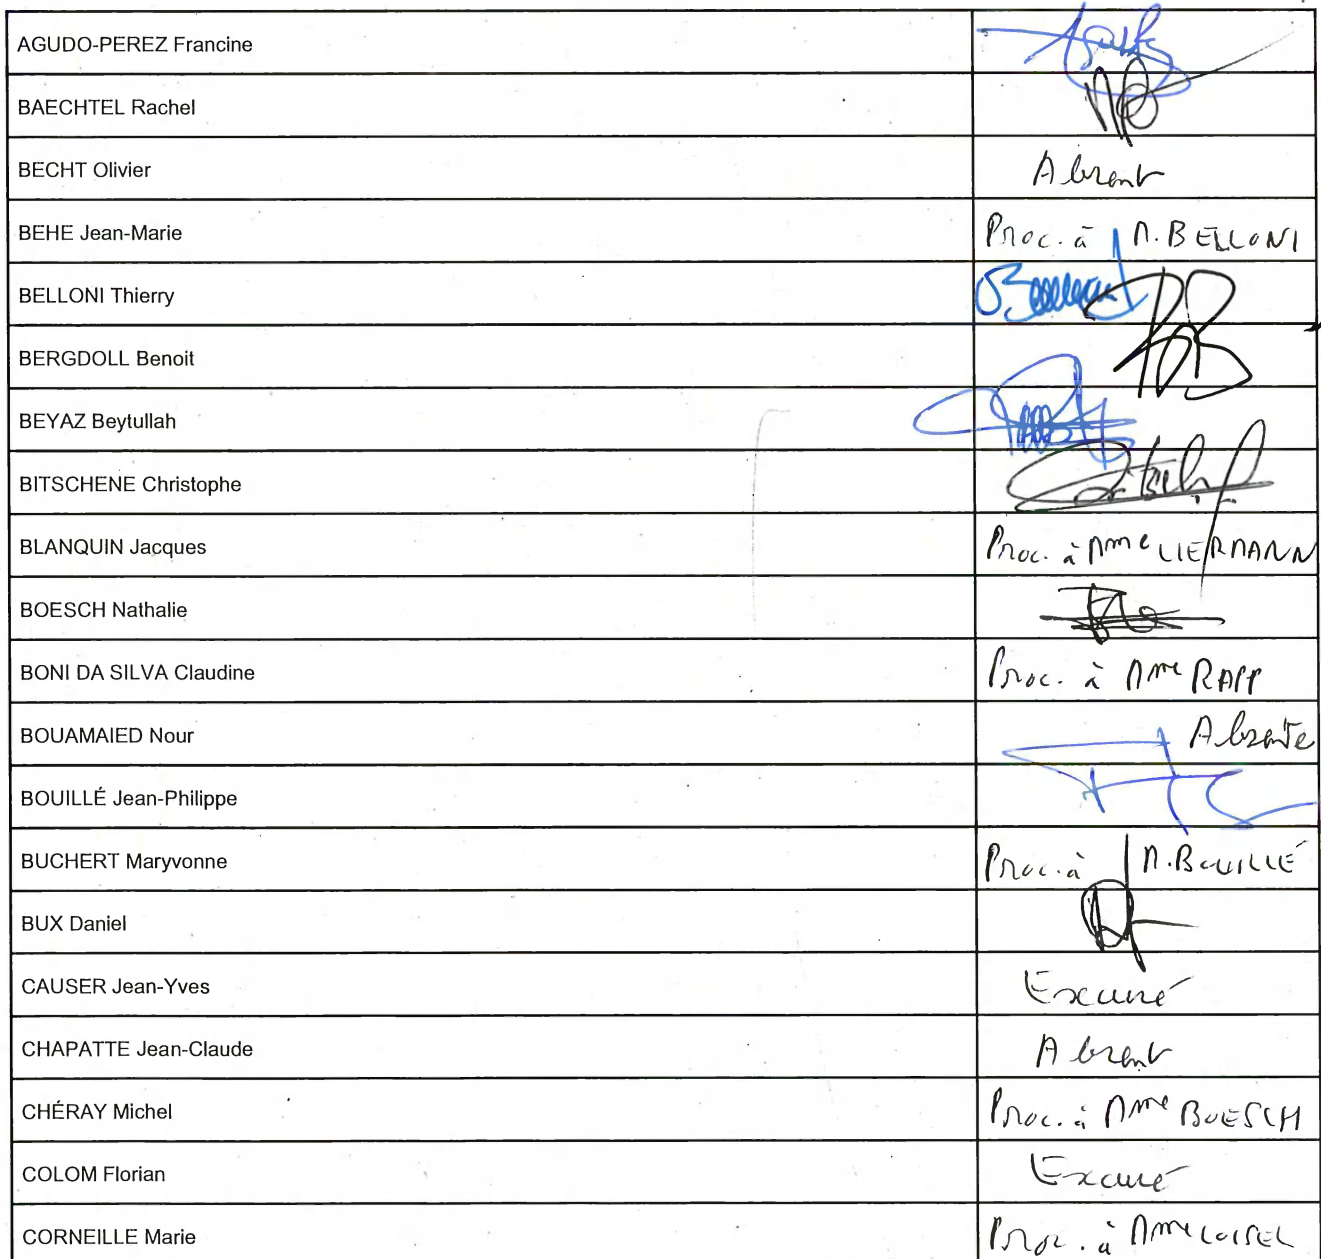 AGUDO-PEREZ Francine
BAECHTEL Rachel
BECHT Olivier Absent
BEHE Jean-Marie Proc. à M. BELLONI
BELLONI Thierry
BERGDOLL Benoit
BEYAZ Beytullah
BITSCHENE Christophe
BLANQUIN Jacques Proc. à Mme LIERMANN
BOESCH Nathalie
BONI DA SILVA Claudine Proc. à Mme RAPP
BOUAMAIED Nour Absente
BOUILLÉ Jean-Philippe
BUCHERT Maryvonne Proc. à M. BOUILLÉ
BUX Daniel
CAUSER Jean-Yves Excusé
CHAPATTE Jean-Claude Absent
CHÉRAY Michel Proc. à Mme BOESCH
COLOM Florian Excusé
CORNEILLE Marie Proc. à Mme LOISEL